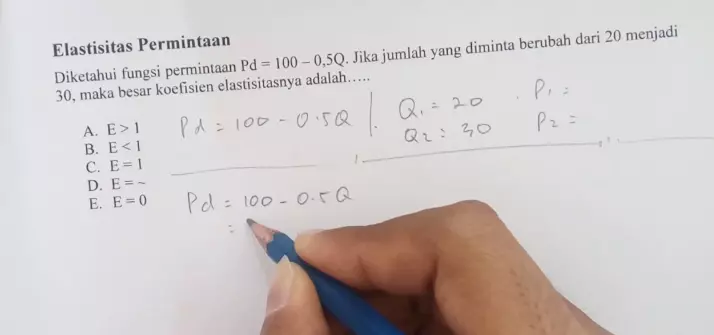 Elastisitas Permintaan
Diketahui fungsi permintaan Pd = 100 – 0,5Q. Jika jumlah yang diminta berubah dari 20 menjadi
30, maka besar koefisien elastisitasnya adalah.....
A. E > 1
B. E < 1
C. E = 1
D. E = ~
E. E = 0
Pd = 100 - 0.5Q
Q1 = 20 P1 =
Q2 = 30 P2 =
Pd = 100 - 0.5Q
=